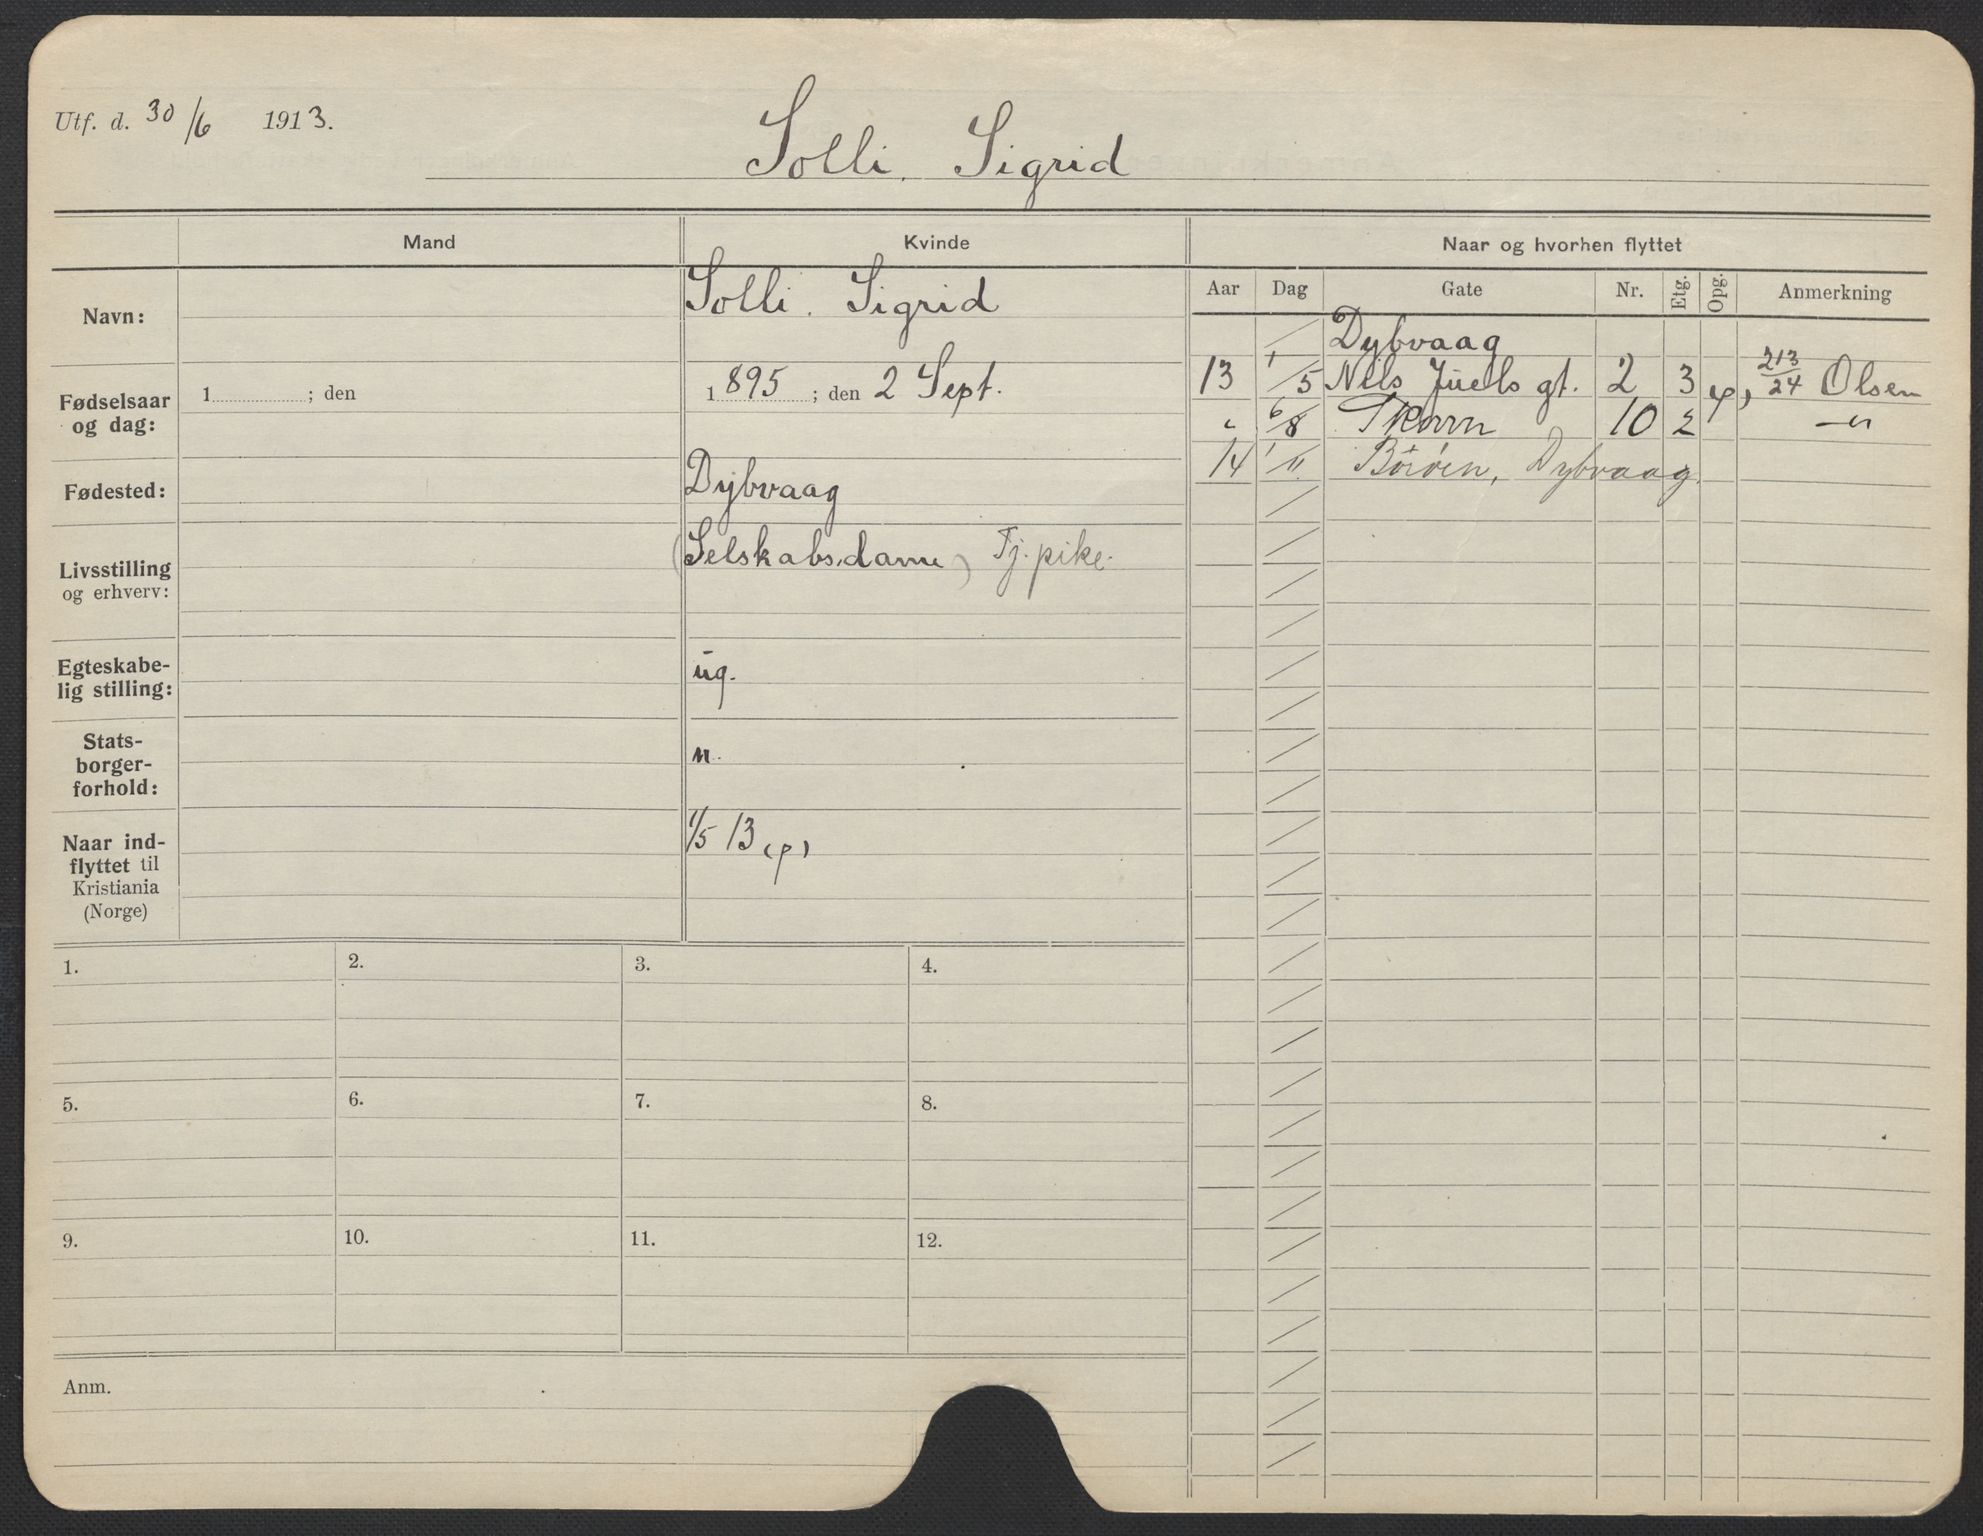 Utf. d. 30/6 1913.
Solli. Sigrid
Mand
Kvinde
Naar og hvorhen flyttet
Navn:
Solli. Sigrid
Aar Dag Gate Nr. Etg. Opg. Anmerkning
Dybvaag
13 1/5 Nils Juels gt. 2 3 213/24 Olsen
6/8 10 2
14 1/11 Börøen, Dybvaag.
Fødselsaar
og dag:
1 ; den
1895 ; den 2 Sept.
Fødested:
Dybvaag
Livsstilling
og erhverv:
(Selskabsdame) Tj. pike.
Egteskabe-
lig stilling:
ug.
Stats-
borger-
forhold:
n.
Naar ind-
flyttet til
Kristiania
(Norge)
1/5 13 (p)
1.
2.
3.
4.
5.
6.
7.
8.
9.
10.
11.
12.
Anm.